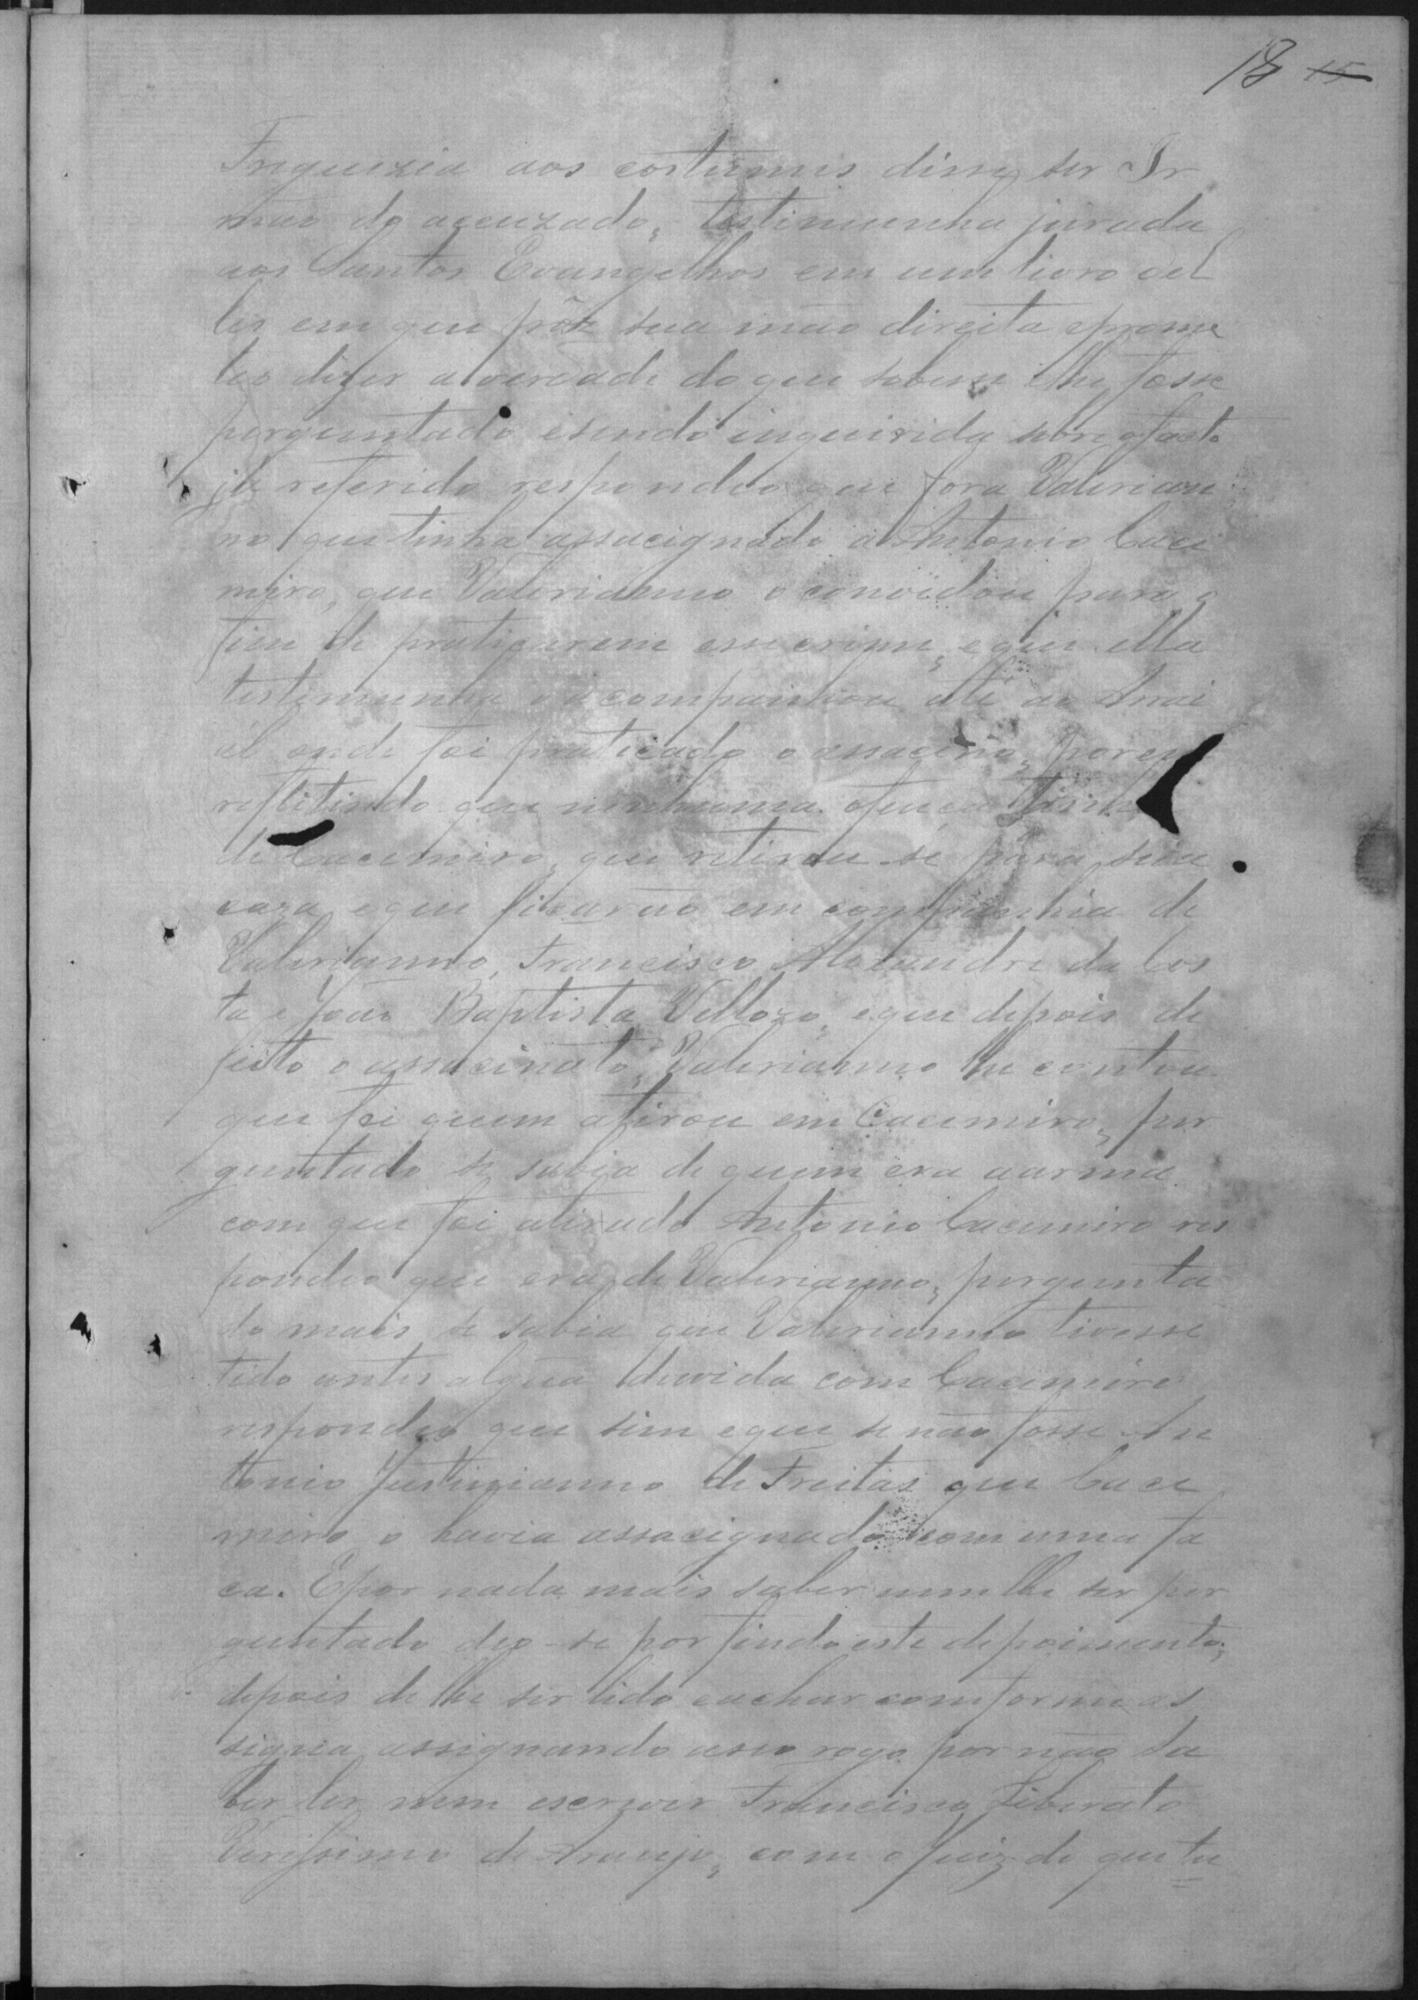 18 15
Freguezia aos costumes disse ser Ir
mão do acuzado, testimunha jurada
aos Santos Evangelhos em um livro del
les em que pôz sua mão direita eprome
teo dizer a verdade do que soubesse e lhe fosse
perguntado esendo inquirida sobre ofacto
já referido respondeo que fora Valerian
no que tinha assacignado a Antonio Caci
miro, que Valerianno o convidou para o
fim de praticarem esse crime, eque ella
testimunha o acompanhou até ao Arrai
al onde foi praticado o assacino, porem
reflitindo que nenhuma ofença tinha
de Cacimiro, que retirou-se para sua
caza eque ficarão em companhia de
Valerianno, Francisco Alexandre da Cos
ta e João Baptista Vellozo, eque depois de
feito o assacinato, Valerianno lhe contou
que foi quem atirou em Cacimiro, per
guntado se sabia de quem era aarma
com que foi atirado Antonio Cacimiro res
pondeo que era de Valerianno, pergunta
do mais se sabia que Valerianno tivesse
tido antes algũa duvida com Cacimiro
respondeo que sim eque se não fosse An
tonio Justinianno de Freitas que Caci
miro o havia assacignado com uma fa
ca. Epor nada mais saber nem lhe ser per
guntado deo-se por findo este depoimento,
depois de lhe ser lido eachar comforme as
signa assignando aseo rogo por não sa
ber ler nem escrever Francisco Liberato
Verissimo de Araujo, com o Juiz do que tu